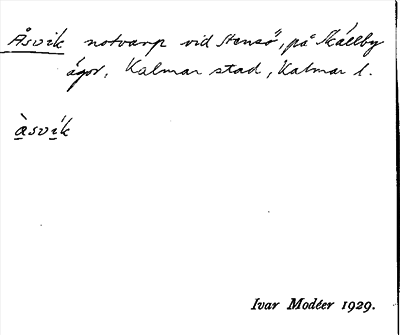 Åsvik notvarp vid Stensö, på Skällby
ägor, Kalmar stad, Kalmar l.
àsvík
Ivar Modéer 1929.